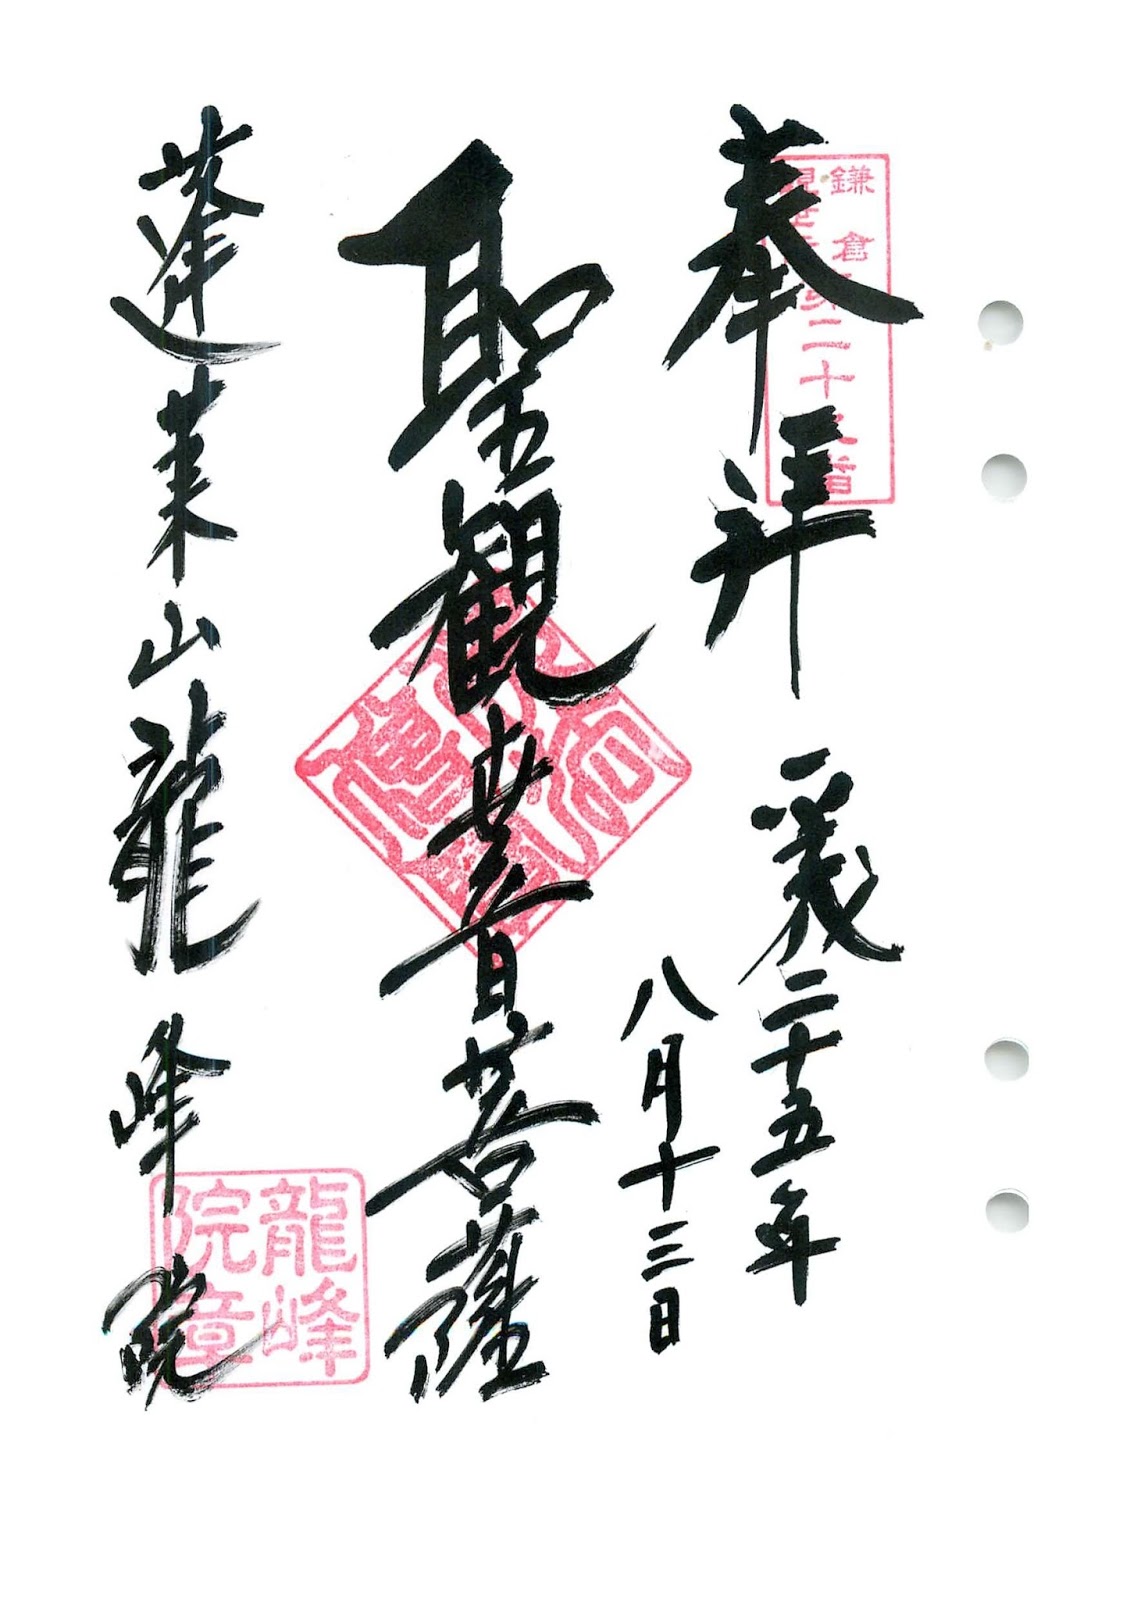 鎌倉第二十九番
奉拝
平成二十五年
八月十三日
聖観世音菩薩
蓬莱山龍峰院
龍峰
院章